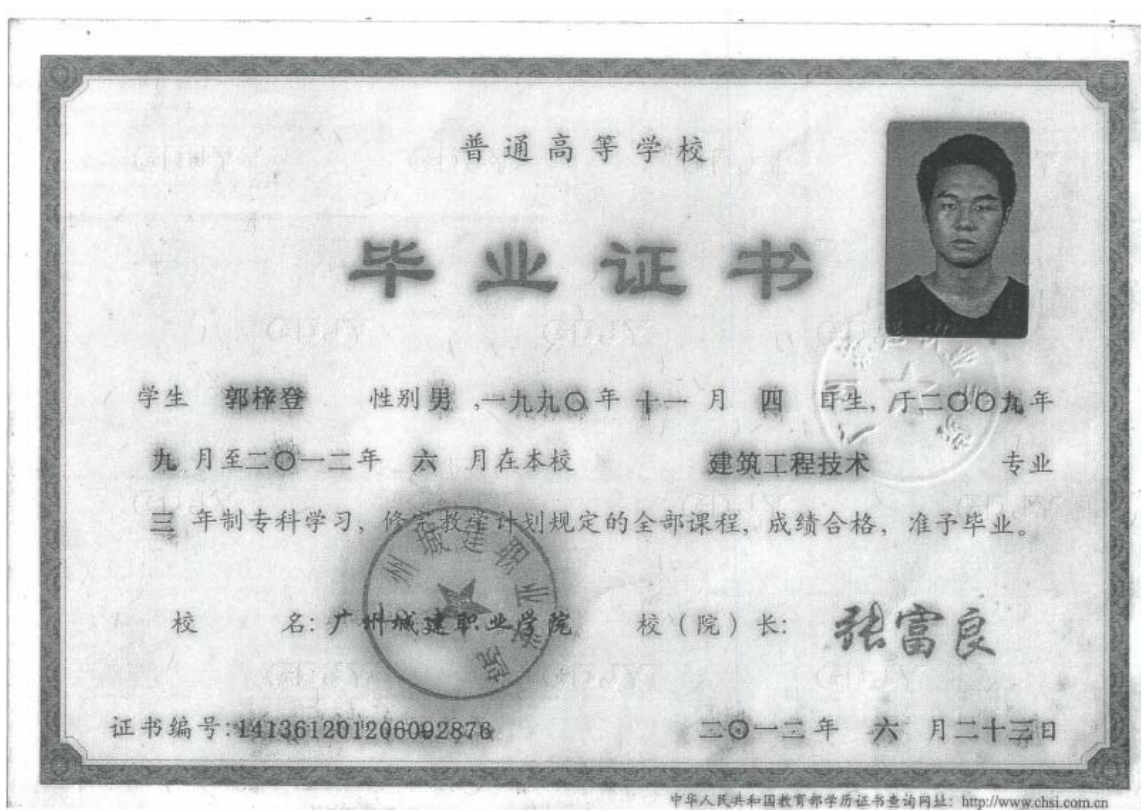 普通高等学校
毕业证书
学生 郭梓登 性别 男 ,一九九〇年 十一 月 四 日生, 于二〇〇九年
九 月至二〇一二年 六 月在本校 建筑工程技术 专业
三 年制专科学习, 修完教学计划规定的全部课程, 成绩合格, 准予毕业。
校 名: 广州城建职业学院 校（院）长: 张富良
州城建职业学院
证书编号:141361201206092876 二〇一二年 六 月二十三日
中华人民共和国教育部学历证书查询网址: http://www.chsi.com.cn